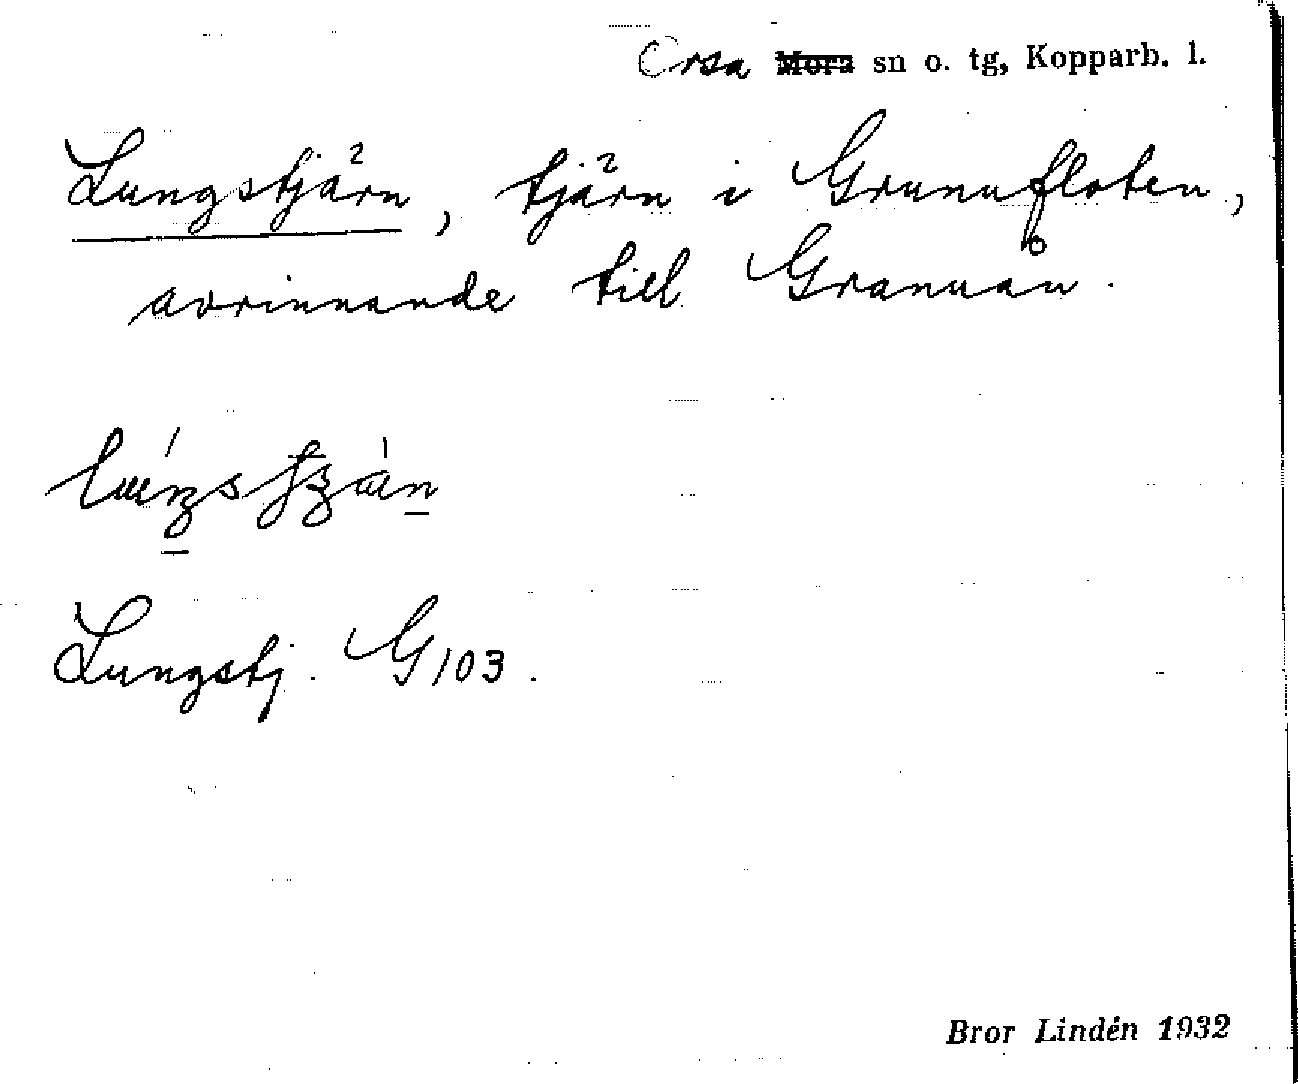 Orsa Mora sn o. tg, Kopparb. l.
Lungstjärn, tjärn i Granufloten,
avrinnande till Granuån.
Lungstj. G103.
Bror Lindén 1932